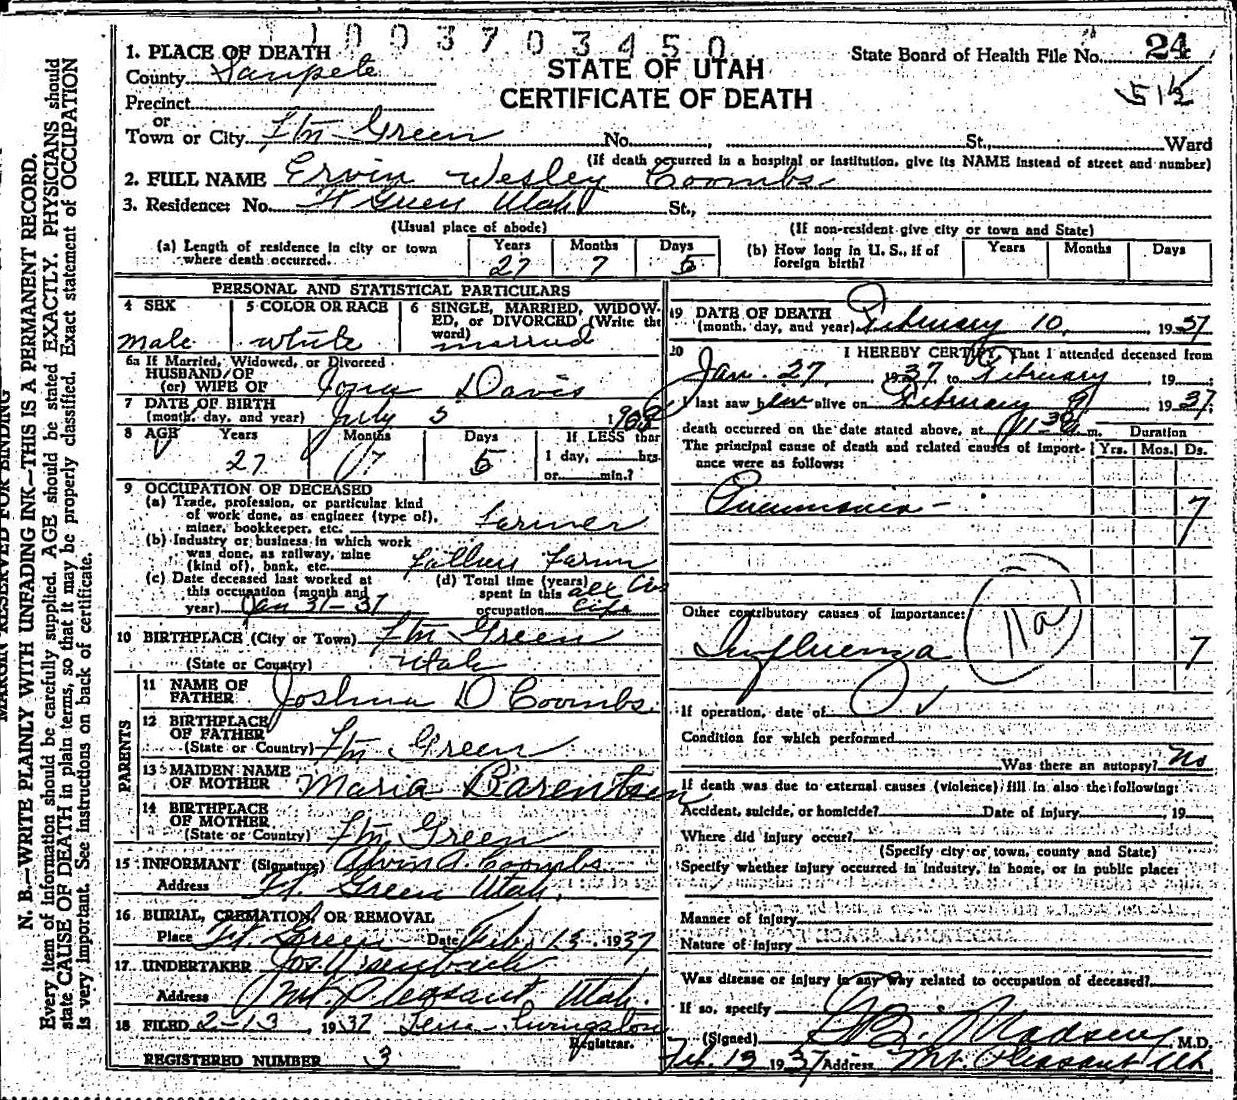 1003703450
1. PLACE OF DEATH
County Sanpete
STATE OF UTAH
CERTIFICATE OF DEATH
State Board of Health File No. 24
Precinct
or
Town or City Ftn Green No. St., Ward
(If death occurred in a hospital or institution, give its NAME instead of street and number)
2. FULL NAME Ervin Wesley Coombs
3. Residence: No. Ft Green Utah St.,
(Usual place of abode) (If non-resident give city or town and State)
(a) Length of residence in city or town where death occurred. Years 27 Months 7 Days 5
(b) How long in U. S., if of foreign birth? Years Months Days
PERSONAL AND STATISTICAL PARTICULARS
4 SEX male
5 COLOR OR RACE white
6 SINGLE, MARRIED, WIDOWED, or DIVORCED (Write the word) married
6a If Married, Widowed, or Divorced
HUSBAND OF
(or) WIFE OF Davis
7 DATE OF BIRTH
(month, day, and year) July 5
8 AGE Years 27 Months 7 Days 5
If LESS than
1 day, hrs.
or min.?
9 OCCUPATION OF DECEASED
(a) Trade, profession, or particular kind
of work done, as engineer (type of),
miner, bookkeeper, etc. Farmer
(b) Industry or business in which work
was done, as railway, mine
(kind of), bank, etc. Fathers Farm
(c) Date deceased last worked at
this occupation (month and
year) Jan 31-37
(d) Total time (years)
spent in this
occupation all his life
10 BIRTHPLACE (City or Town) Ftn Green
(State or Country) Utah
PARENTS
11 NAME OF
FATHER Joshua D Coombs
12 BIRTHPLACE
OF FATHER
(State or Country) Ftn Green
13 MAIDEN NAME
OF MOTHER Maria Barentsen
14 BIRTHPLACE
OF MOTHER
(State or Country) Ftn Green
15 INFORMANT (Signature) Alvin A. Coombs
Address Ft Green Utah.
16 BURIAL, CREMATION, OR REMOVAL
Place Ft Green Date Feb. 13. 1937
17 UNDERTAKER
Address Mt. Pleasant, Utah.
18 FILED 2-13, 1937 Livingston
Registrar.
REGISTERED NUMBER 3
19 DATE OF DEATH
(month, day, and year) February 10, 1937
20 I HEREBY CERTIFY, That I attended deceased from
Jan. 27, 1937, to February 19
I last saw him alive on February 9, 1937;
death occurred on the date stated above, at m.
Duration
The principal cause of death and related causes of importance were as follows: Yrs. Mos. Ds.
Pneumonia- 7
Other contributory causes of importance: 11a
Influenza 7
If operation, date of
Condition for which performed
Was there an autopsy? No
If death was due to external causes (violence) fill in also the following:
Accident, suicide, or homicide? Date of Injury 19
Where did injury occur?
(Specify city or town, county and State)
Specify whether injury occurred in industry, in home, or in public place:
Manner of Injury
Nature of Injury
Was disease or injury in any way related to occupation of deceased?
If so, specify
(Signed) Madsen, M.D.
Feb. 13 1937 Address Mt. Pleasant, Ut.
MARGIN RESERVED FOR BINDING
N. B.—WRITE PLAINLY WITH UNFADING INK—THIS IS A PERMANENT RECORD.
Every item of information should be carefully supplied. AGE should be stated EXACTLY. PHYSICIANS should
state CAUSE OF DEATH in plain terms, so that it may be properly classified. Exact statement of OCCUPATION
is very important. See instructions on back of certificate.